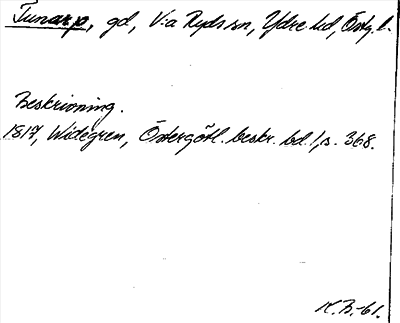 Tunarp, gd, V:a Ryds sn, Ydre hd, Östg. l.
Beskrivning.
1817, Widegren, Östergötl. beskr. bd. 1, s. 368.
K.B.-61.